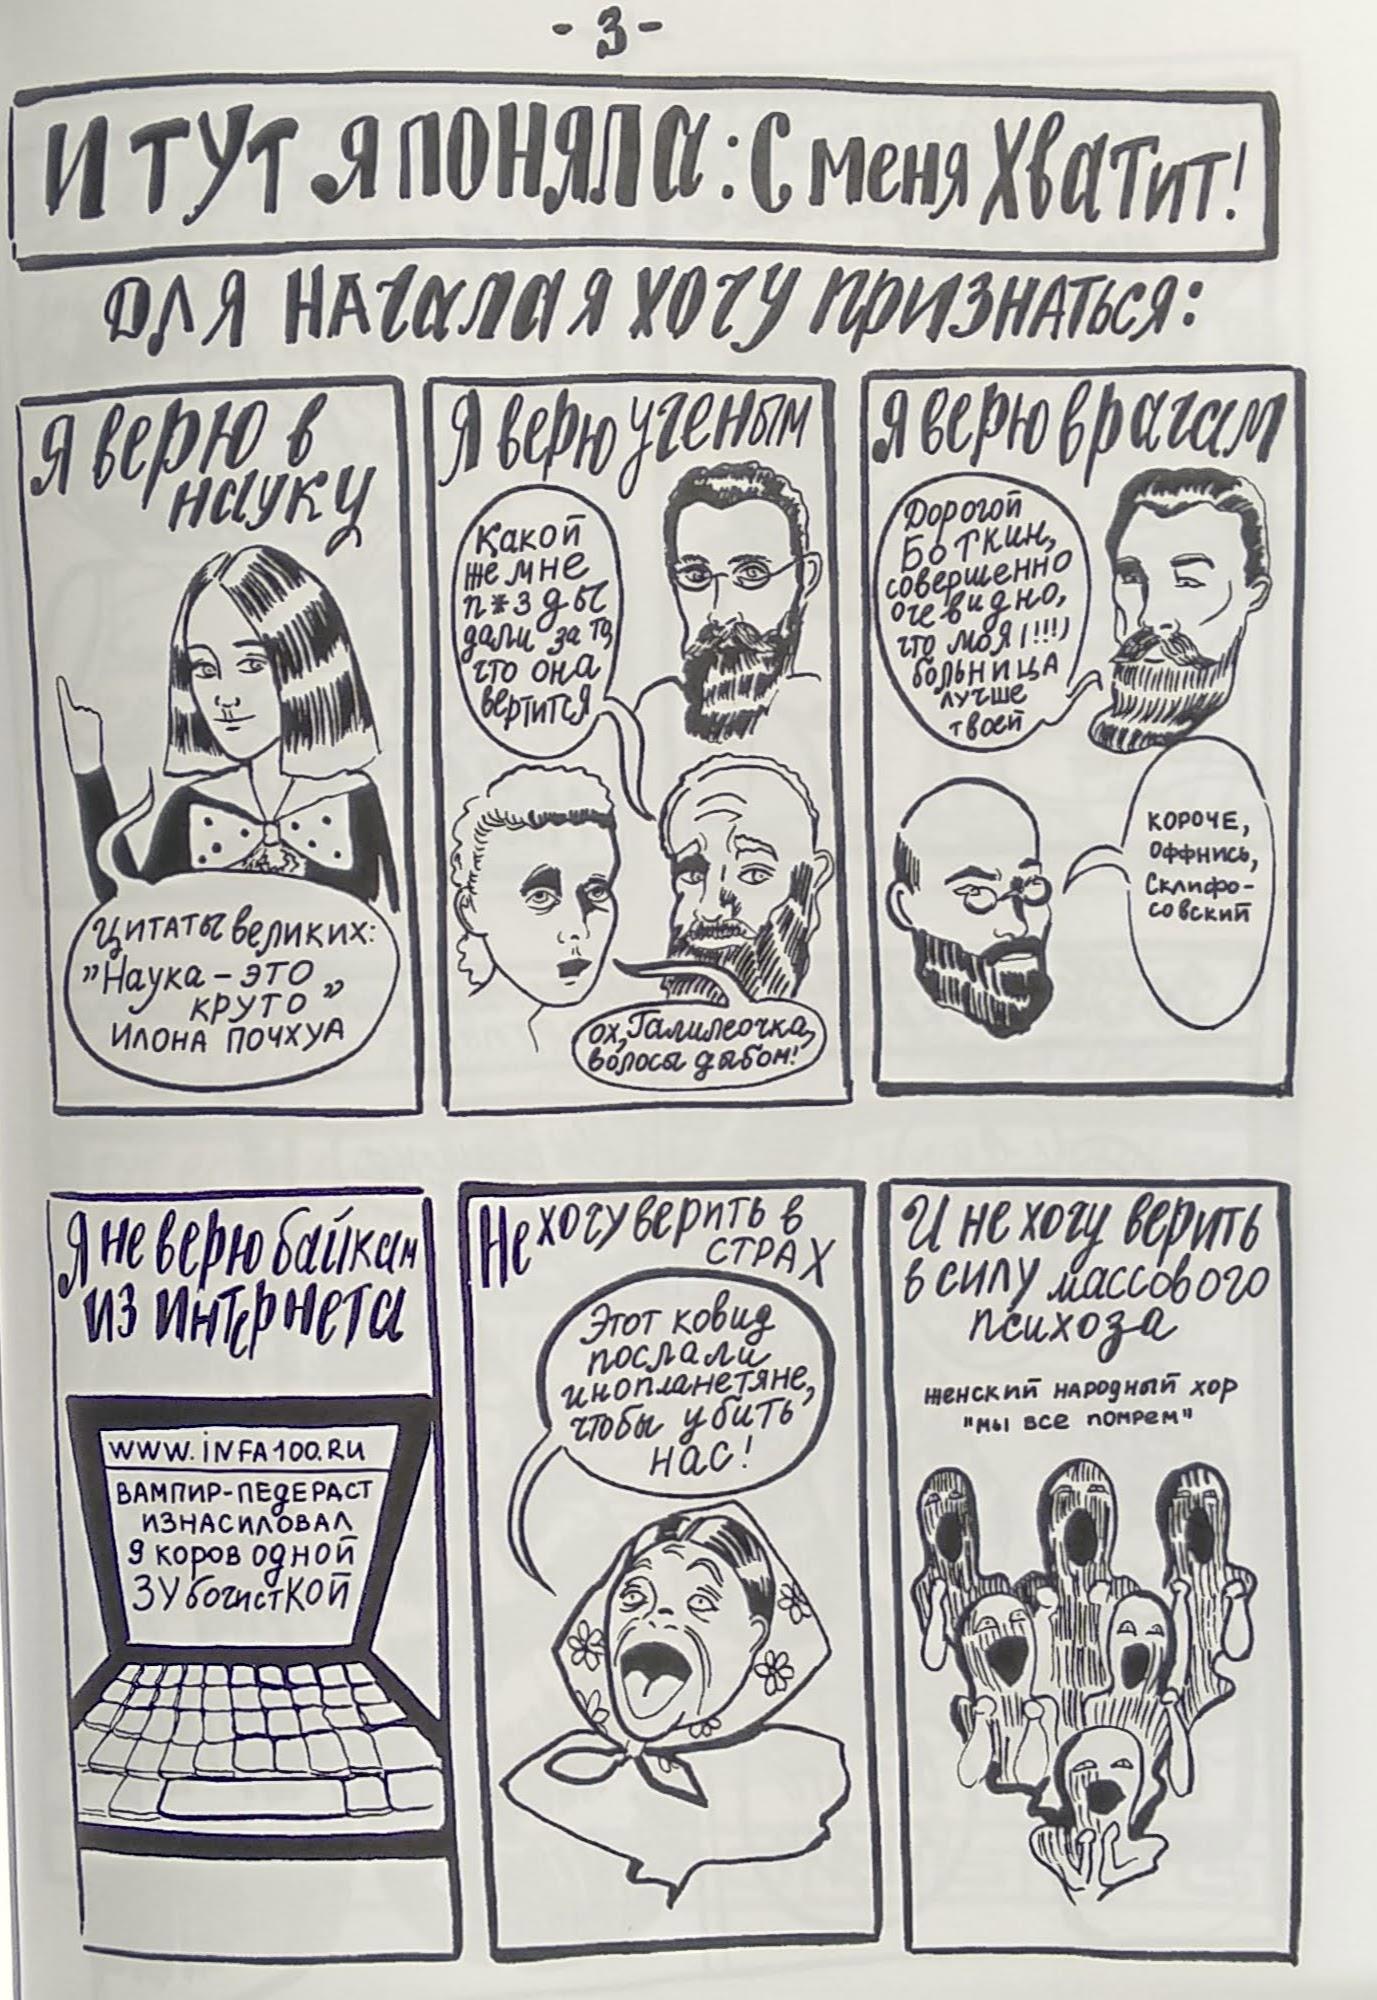 - 3 -
И ТУТ Я ПОНЯЛА: С меня ХваТиТ!
ДЛЯ НАЧАЛА Я ХОЧУ ПРИЗНАТЬСЯ:
Я верю в
науку
Цитаты великих:
"Наука - ЭТО
круто"
ИЛОНА ПОЧХУА
Я верю ученым
Какой
же мне
п*зды
дали за то,
что она
вертится
ох, Галилеочка,
волосы дыбом!
Я верю врачам
Дорогой
Боткин,
совершенно
очевидно,
что моя(!!!)
больница
лучше
твоей
КОРОЧЕ,
Оффнись,
Склифо-
совский
Я не верю байкам
из интернета
WWW.INFA100.RU
ВАМПИР-ПЕДЕРАСТ
ИЗНАСИЛОВАЛ
9 коров одной
Зубочисткой
Не хочу верить в
СТРАХ
Этот ковид
послали
инопланетяне,
чтобы убить
нас!
И не хочу верить
в силу массового
психоза
женский народный хор
"мы все помрем"